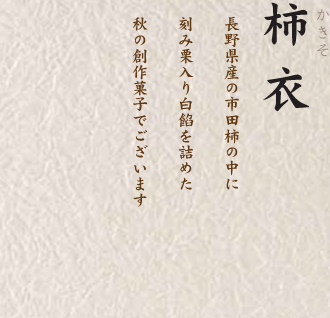 かきそ
柿衣
長野県産の市田柿の中に
刻み栗入り白餡を詰めた
秋の創作菓子でございます